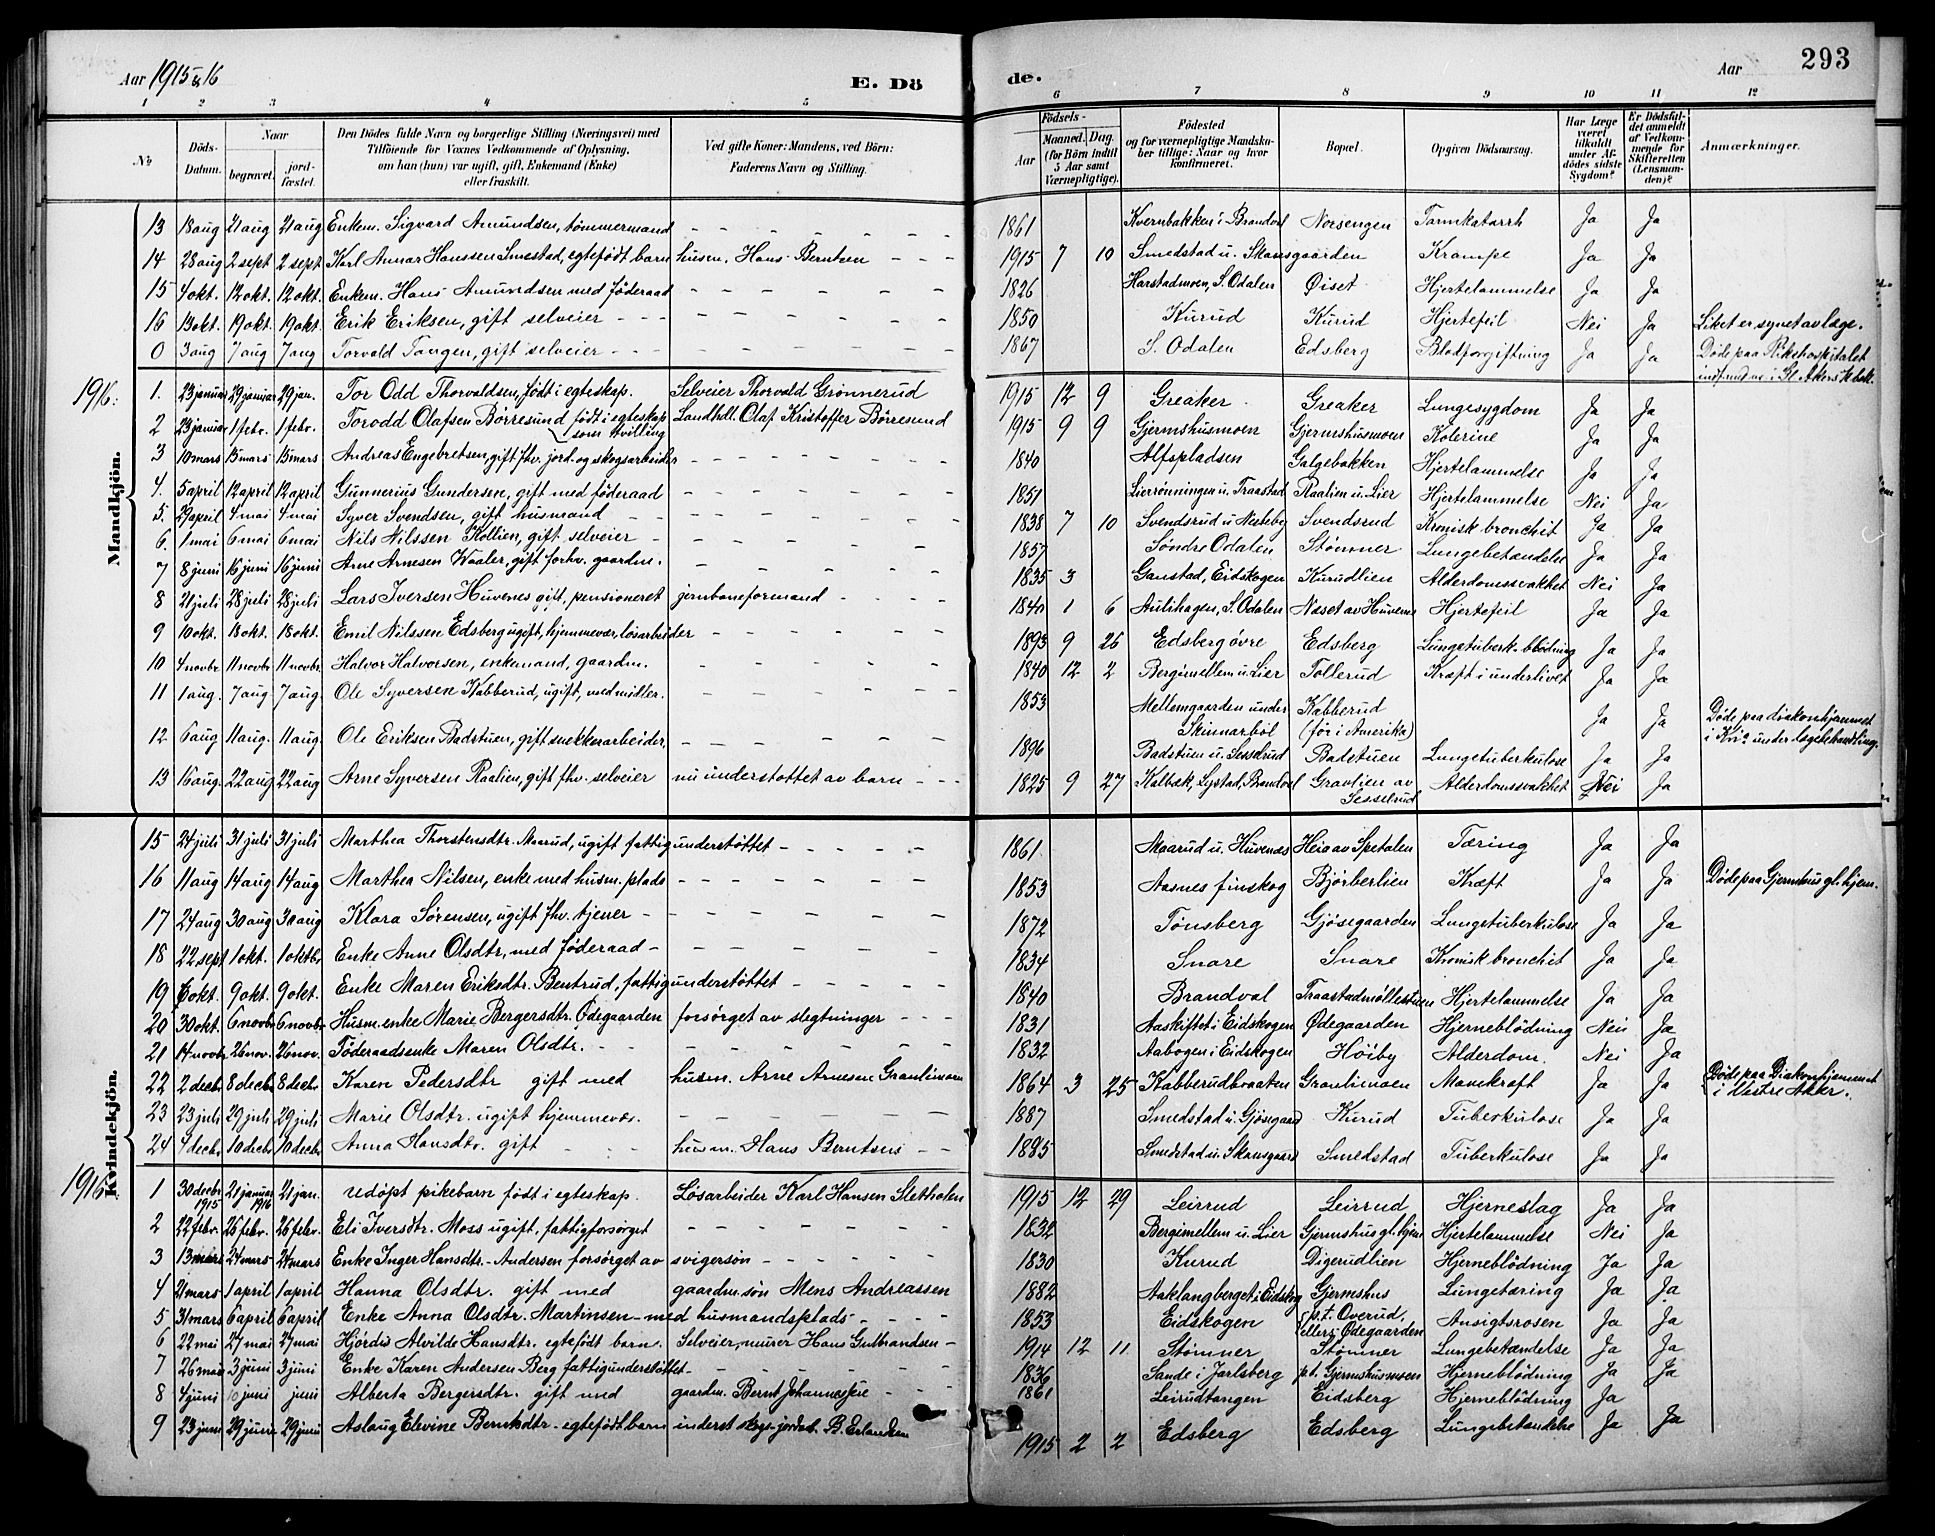 Aar 1915 & 16 E. Dö de. Aar 293
1 2 3 4 5 6 7 8 9 10 11 12
No Döds-Datum. Naar begravet. jordfæstet. Den Dödes fulde Navn og borgerlige Stilling (Næringsvei) med Tilföiende for Voxnes Vedkommende af Oplysning, om han (hun) var ugift, gift, Enkemand (Enke) eller fraskilt. Ved gifte Koner: Mandens, ved Börn: Faderens Navn og Stilling. Födsels- Aar Maaned. Dag. (for Börn indtil 5 Aar samt Værnepligtige). Födested og for værnepligtige Mandskaber tillige: Naar og hvor konfirmeret. Bopæl. Opgiven Dödsaarsag. Har Læge været tilkaldt under Afdödes sidste Sygdom? Er Dödsfaldet anmeldt af Vedkommende for Skifteretten (Lensmanden)? Anmærkninger.
Mandkjön.
13 18 aug 21 aug 21 aug Enkem. Sigvard Amundsen, tømmermand 1861 Kvernbakken i Brandval Norsengen Tarmkatarrh Ja Ja
14 28 aug 2 sept 2 sept. Karl Annar Hanssen Smestad, egtefødt barn husm. Hans Berntsen 1915 7 10 Smedstad u. Skansgaarden Krampe Ja Ja
15 4 okt. 12 okt. 12 okt. Enkem. Hans Amundsen med føderaad 1826 Harstadmoen, S. Odalen Øiset Hjertelammelse Ja Ja
16 13 okt. 19 okt. 19 okt. Erik Eriksen, gift selveier 1850 Kurud Kurud Hjertefeil Nei Ja Liket er synet av læge.
0 3 aug 7 aug 7 aug Torvald Tangen, gift selveier 1867 S. Odalen Edsberg Blodforgiftning Ja Ja Døde paa Rikshospitalet
1916:
1. 23 januar 29 januar 29 jan. Tor Odd Thorvaldsen, født i egteskap. Selveier Thorvald Grønnerud 1915 12 9 Greaker Greaker Lungesygdom Ja Ja
2 23 januar 1 febr. 1 febr. Torodd Olafsen Børresund født i egteskap som tvilling Landhdl. Olaf Kristoffer Børresund 1915 9 9 Gjermshusmoen Gjermshusmoen Kolerine Ja Ja
3 10 mars 15 mars 15 mars Andreas Engebretsen, gift fhv. jord- og skogsarbeider 1840 Alfspladsen Galgebakken Hjertelammelse Ja Ja
4. 5 april 12 april 12 april Gunnerius Gundersen, gift med føderaad 1851 Lierrønningen u. Traastad Raalien u. Lier Hjertelammelse Nei Ja
5. 29 april 4 mai 4 mai Syver Svendsen, gift husmand 1838 7 10 Svendsrud u. Nesteby Svendsrud Kronisk bronchit Ja Ja
6. 1 mai 6 mai 6 mai Nils Nilssen Kollien, gift selveier 1857 Søndre Odalen Stømner Lungebetændelse Ja Ja
7 8 juni 16 juni 16 juni Arne Arnesen Waaler, gift forhv. gaardm. 1835 3 Ganstad, Eidskogen Kurudlien Alderdomssvakhet Nei Ja
8 21 juli 28 juli 28 juli Lars Iversen Huvenes gift, pensioneret jernbaneformand 1840 1 6 Aulihagen, S. Odalen Næset av Huvenes Hjertefeil Ja Ja
9 10 okt. 18 okt. 18 okt. Emil Nilssen Edsberg ugift, hjemmevær. løsarbeider 1893 9 26 Edsberg øvre Edsberg Lungetuberk. blødning Ja Ja
10 4 novbr 11 novbr 11 novbr Halvor Halvorsen, enkemand, gaardm. 1840 12 2 Bergimellem u. Lier Tollerud Kræft i underlivet Ja Ja
11 1 aug. 7 aug 7 aug Ole Syversen Kabberud, ugift, med midler. 1853 Mellemgaarden under Skinnarbøl Kabberud (før i Amerika) Ja Ja Døde paa diakonhjemmet i Kr.a under lægebehandling.
12 6 aug 11 aug. 11 aug. Ole Eriksen Badstuen, gift snekkerarbeider, 1896 Badstuen u. Sesselrud Badstuen Lungetuberkulose Ja Ja
13 16 aug. 22 aug 22 aug Arne Syversen Raalien, gift fhv. selveier nu understøttet av barn 1825 9 27 Kalbæk, Lystad, Brandval Gravlien av Sesselrud Alderdomssvakhet Nei Ja
Kvindekjön.
15 24 juli 31 juli 31 juli Marthea Thorstensdtr. Maarud, ugift fattigunderstøttet 1861. Maarud u. Huvenæs Heia av Spetalen Tæring Ja Ja
16 11 aug 14 aug 14 aug Marthea Nilsen, enke med husm. plads 1853 Aasnes finskog Bjørberlien Kræft Ja Ja Døde paa Gjermshus gl. hjem.
17 24 aug 30 aug 30 aug Klara Sørensen, ugift fhv. tjener 1872 Tønsberg Gjøsegaarden Lungetuberkulose Ja Ja
18 22 sept 1 okt. 1 oktbr Enke Anne Olsdtr, med føderaad 1834 Snare Snare Kronisk bronchit Ja Ja
19 6 okt. 9 okt. 9 okt. Enke Maren Eriksdtr. Bentrud, fattigunderstøttet 1840 Brandval Traastadmøllestuen Hjertelammelse Ja Ja
20 30 okt. 6 novbr 6 novbr Husm. enke Marie Bergersdtr. Ødegaarden forsørget av slegtninger 1831 Aaskiftet i Eidskogen Ødegaarden Hjerneblødning Nei Ja
21 14 novbr 26 nov. 26 nov. Føderaadsenke Maren Olsdtr. 1832 Aabogen i Eidskogen Høiby Alderdom. Nei Ja
22 2 decbr 8 decbr 8 decbr Karen Pedersdtr gift med husm. Arne Arnesen Granlimoen 1864 3 25 Kabberudbraaten Granlimoen Mavekræft Ja Ja Døde paa Diakonhjemmet i Vestre Aker.
23 23 juli 29 juli 29 juli Marie Olsdtr. ugift hjemmevær. 1887 Smedstad u. Gjøsegaard Kurud Tuberkulose Ja Ja
24 4 decbr 10 decbr 10 decbr Anna Hansdtr. gift husm. Hans Berntsens 1895 Smedstad u. Skansgaard Smedstad Tuberkulose Ja Ja
1916
1 30 decbr 1915 21 januar 1916 21 jan. Udøpt pikebarn født i egteskap. Løsarbeider Karl Hansen Sletholen 1915 12 29 Leirud Leirud Hjerneslag Ja Ja
2 22 febr. 26 febr. 26 febr. Eli Iversdtr. Moss ugift, fattigforsørget 1832 Bergimellem u. Lier Gjermshus gl. hjem Hjertelammelse Nei Ja
3 13 mars 24 mars 24 mars Enke Inger Hansdtr. Andersen forsørget av svigersøn 1830 Kurud Digerudlien Hjerneblødning Ja Ja
4 21 mars 1 april 1 april Hanna Olsdtr. gift med gaardm. søn Mens Andreassen 1882 Aaklangberget i Eidskog Gjermshus Lungetæring Ja Ja
5 31 mars 6 april 6 april Enke Anna Olsdtr. Martinsen med husmandsplads 1853 Eidskogen p.t. Overud, ellers Ødegaarden Ansigtsrosen Ja Ja
6 22 mai 27 mai 27 mai Hjørdis Alvilde Hansdtr. egtefødt barn. Selveier, murer Hans Gulbrandsen 1914 12 11 Stømner Stømner Lungebetændelse Ja Ja
7 26 mai 3 juni 3 juni Enke Karen Andersen Berg fattigunderstøttet 1836 Sande i Jarlsberg p.t. Gjermshusmoen Hjerneblødning Ja Ja
8 4 juni 10 juni juni Alberta Bergersdtr. gift med gaardm. Bernt Johannessen 1861 Leirudtangen Eidsberg Hjerneblødning Ja
9 23 juni 29 juni 29 juni Aslaug Elevine Berntsdtr. egtefødt barn underst skogs- jordarb. B. Erlandsen 1915 2 2 Edsberg Edsberg Lungebetændelse Ja Ja